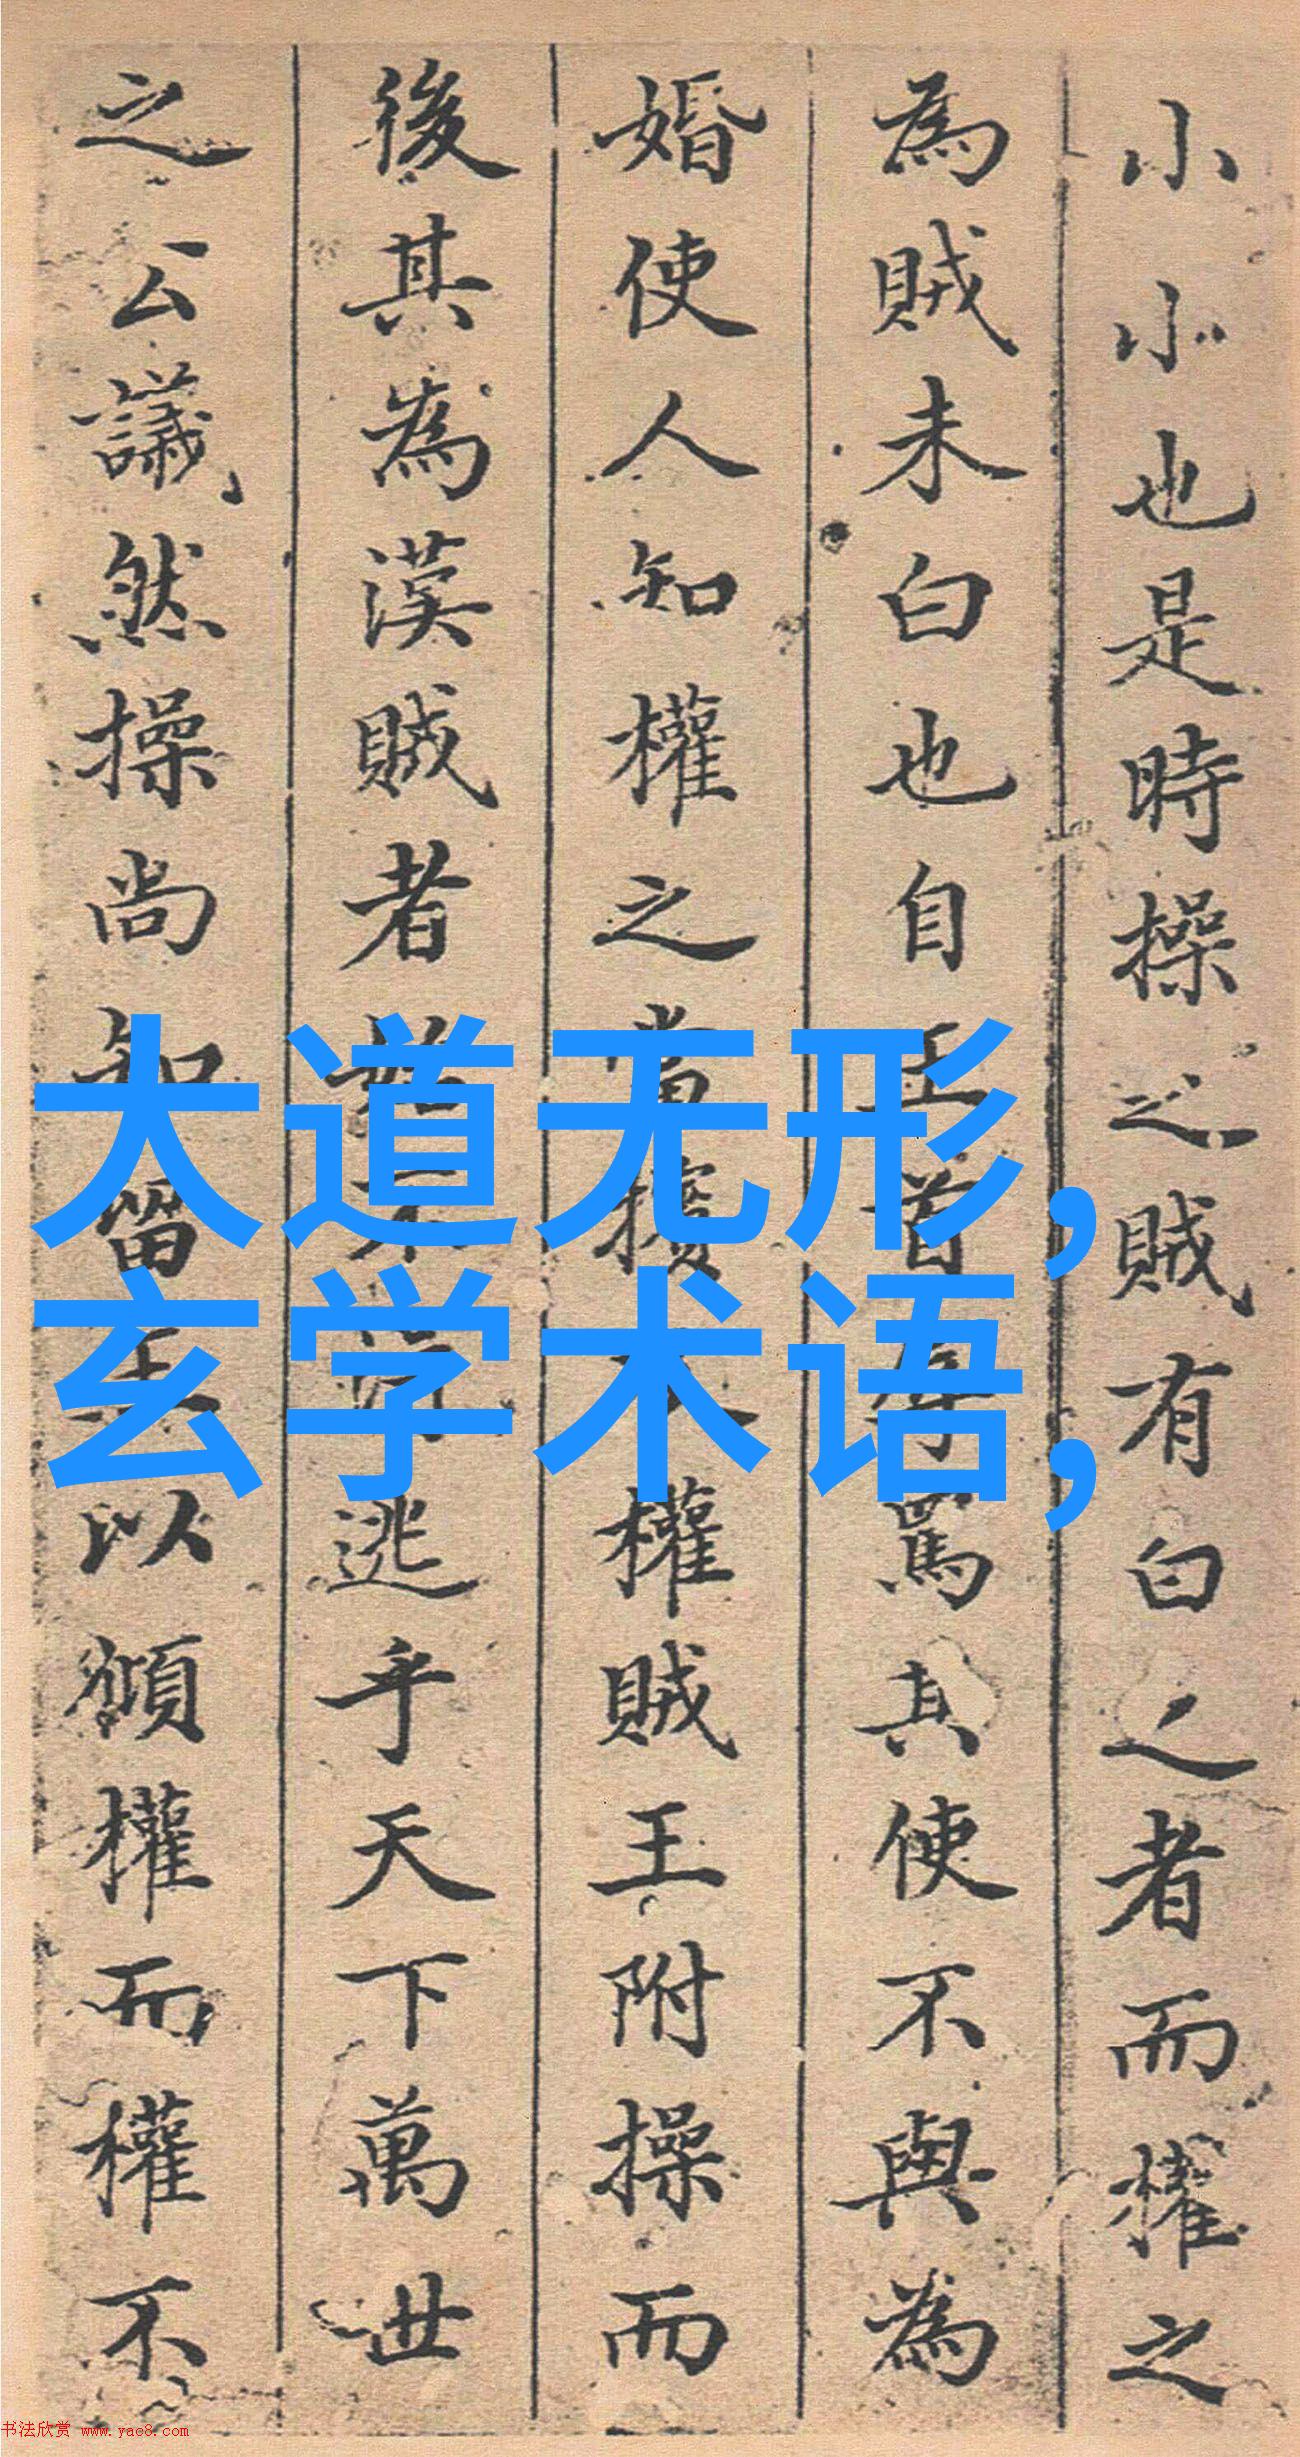 小小也是時操之賊有白之者而權之
為賊未白也自首罵其使不與為
婚使人知權之當權賊王附操而
後其為漢賊者不逃乎天下萬世
之公議然操尚知留以權而權不
大道无形,
玄学术语,
书法欣赏 www.yac8.com